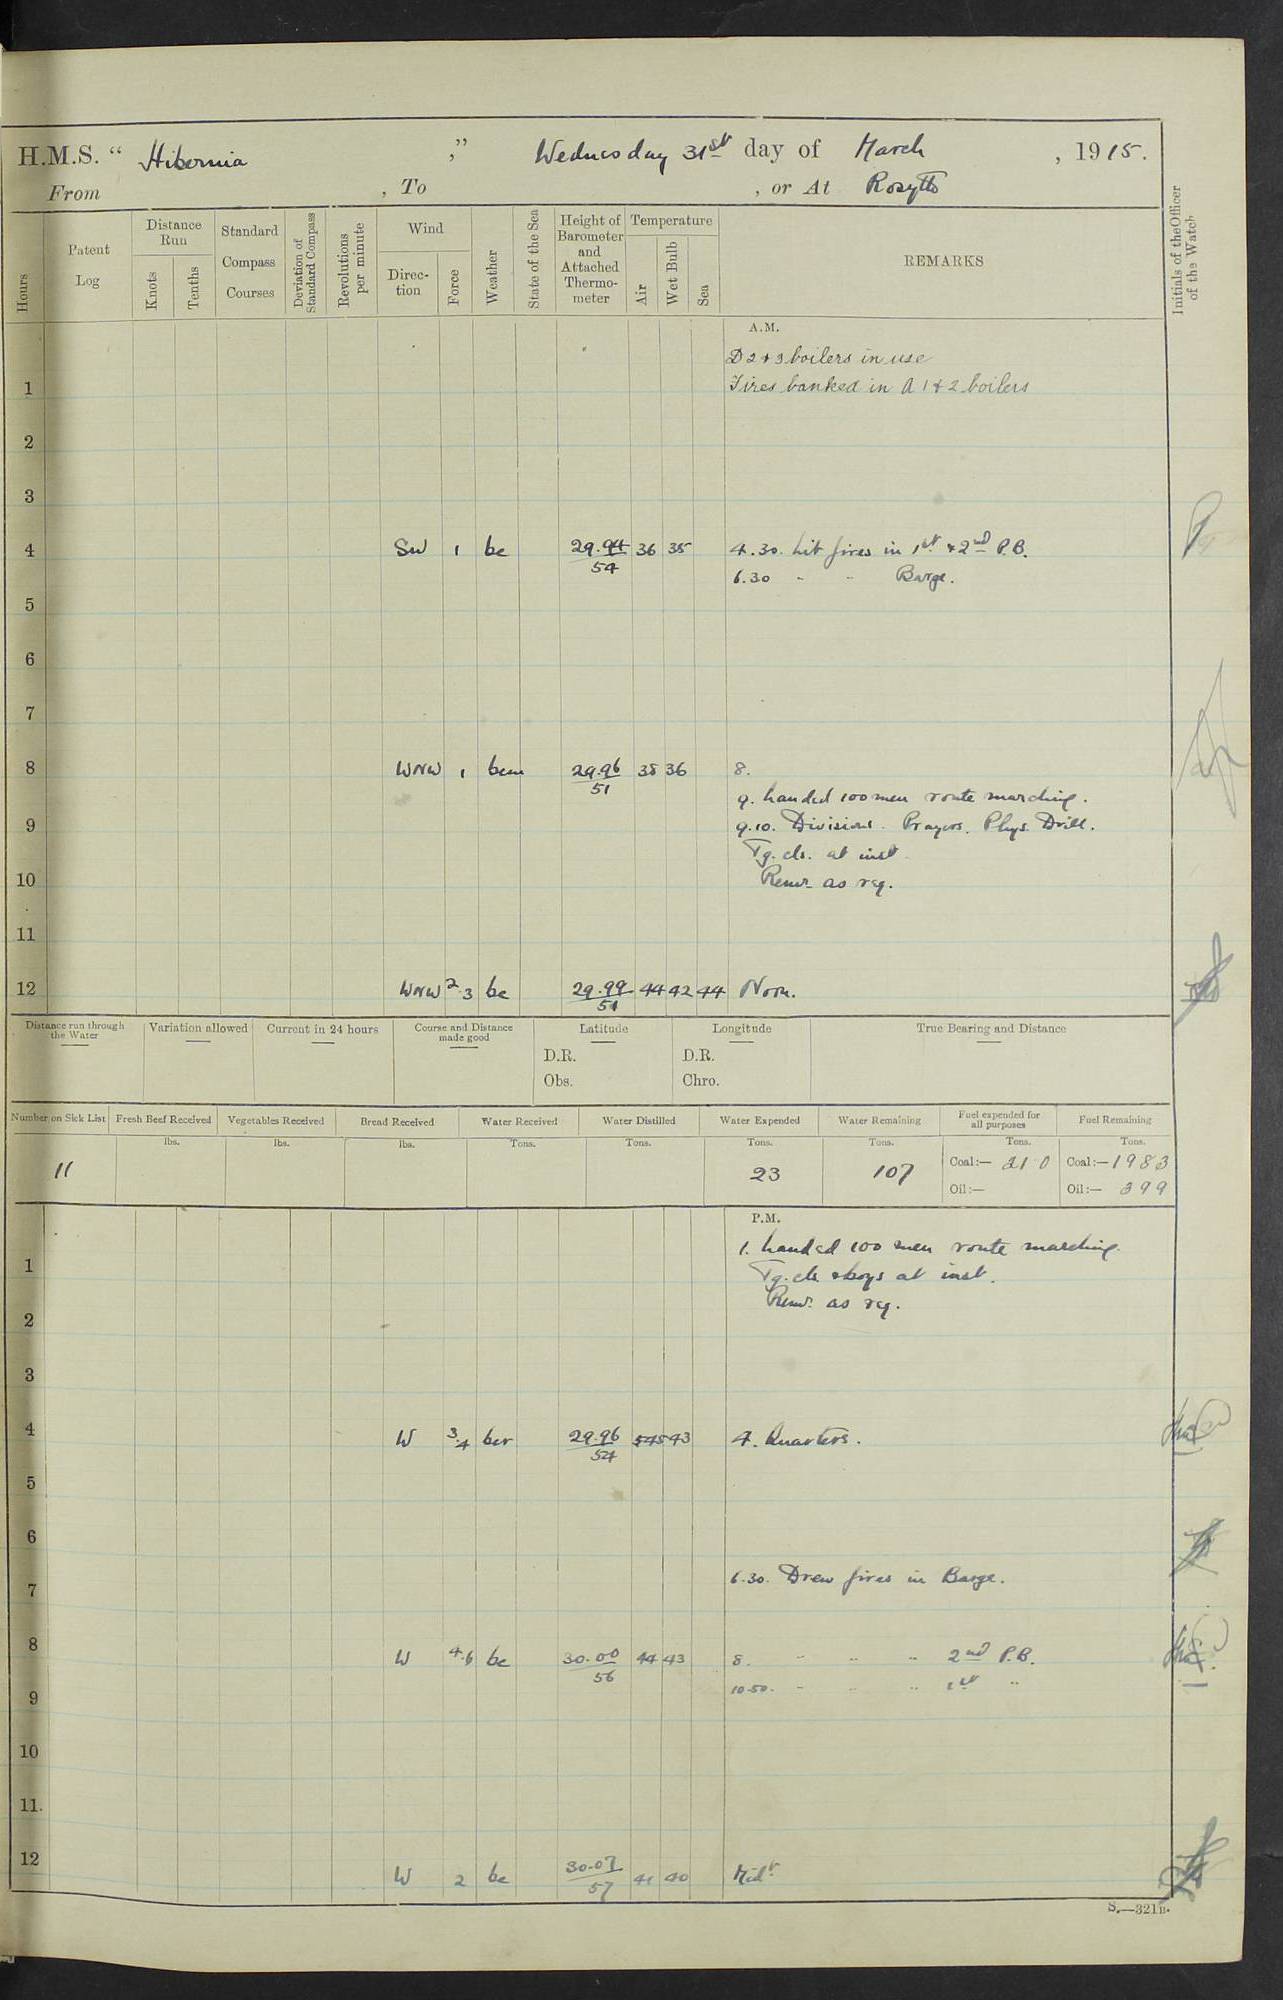 H.M.S. " Hibernia ," Wednesday 31st day of March , 1915.
From , To , or At Rosyth
Hours
Patent Log
Distance Run
Knots
Tenths
Standard Compass Courses
Deviation of Standard Compass
Revolutions per minute
Wind
Direc-tion
Force
Weather
State of the Sea
Height of Barometer and Attached Thermo-meter
Temperature
Air
Wet Bulb
Sea
REMARKS
Initials of the Officer of the Watch
A.M.
D 2 & 3 boilers in use
1 Fires banked in A 1 & 2 boilers
2
3
4 SW 1 bc 29.94 54 36 35 4.30. Lit fires in 1st & 2nd P.B.
6.30 " " Barge.
5
6
7
8 WNW 1 bcm 29.96 51 38 36 8.
9. Landed 100 men route marching.
9 9.10. Divisions. Prayers. Phys. Drill.
Tg. cls. at inst.
10 Remr. as req.
11
12 WNW 2.3 bc 29.99 51 44 42 44 Noon.
Distance run through the Water
Variation allowed
Current in 24 hours
Course and Distance made good
Latitude
Longitude
True Bearing and Distance
D.R. D.R.
Obs. Chro.
Number on Sick List
Fresh Beef Received
Vegetables Received
Bread Received
Water Received
Water Distilled
Water Expended
Water Remaining
Fuel expended for all purposes
Fuel Remaining
lbs. lbs. lbs. Tons. Tons. Tons. Tons. Tons. Tons.
11 23 107 Coal:— 21 0 Coal:— 1983
Oil:— Oil:— 399
P.M.
1. Landed 100 men route marching.
1 Tg. cls. & boys at inst.
Remr. as req.
2
3
4 W 3.4 bcr 29.96 54 45 43 4. Quarters.
5
6
6.30. Drew fires in Barge.
7
8 W 4.6 bc 30.00 56 44 43 8. " " " 2nd P.B.
10.50. " " " 1st "
9
10
11.
12 W 2 bc 30.07 57 41 40 Midt.
S.—321B.